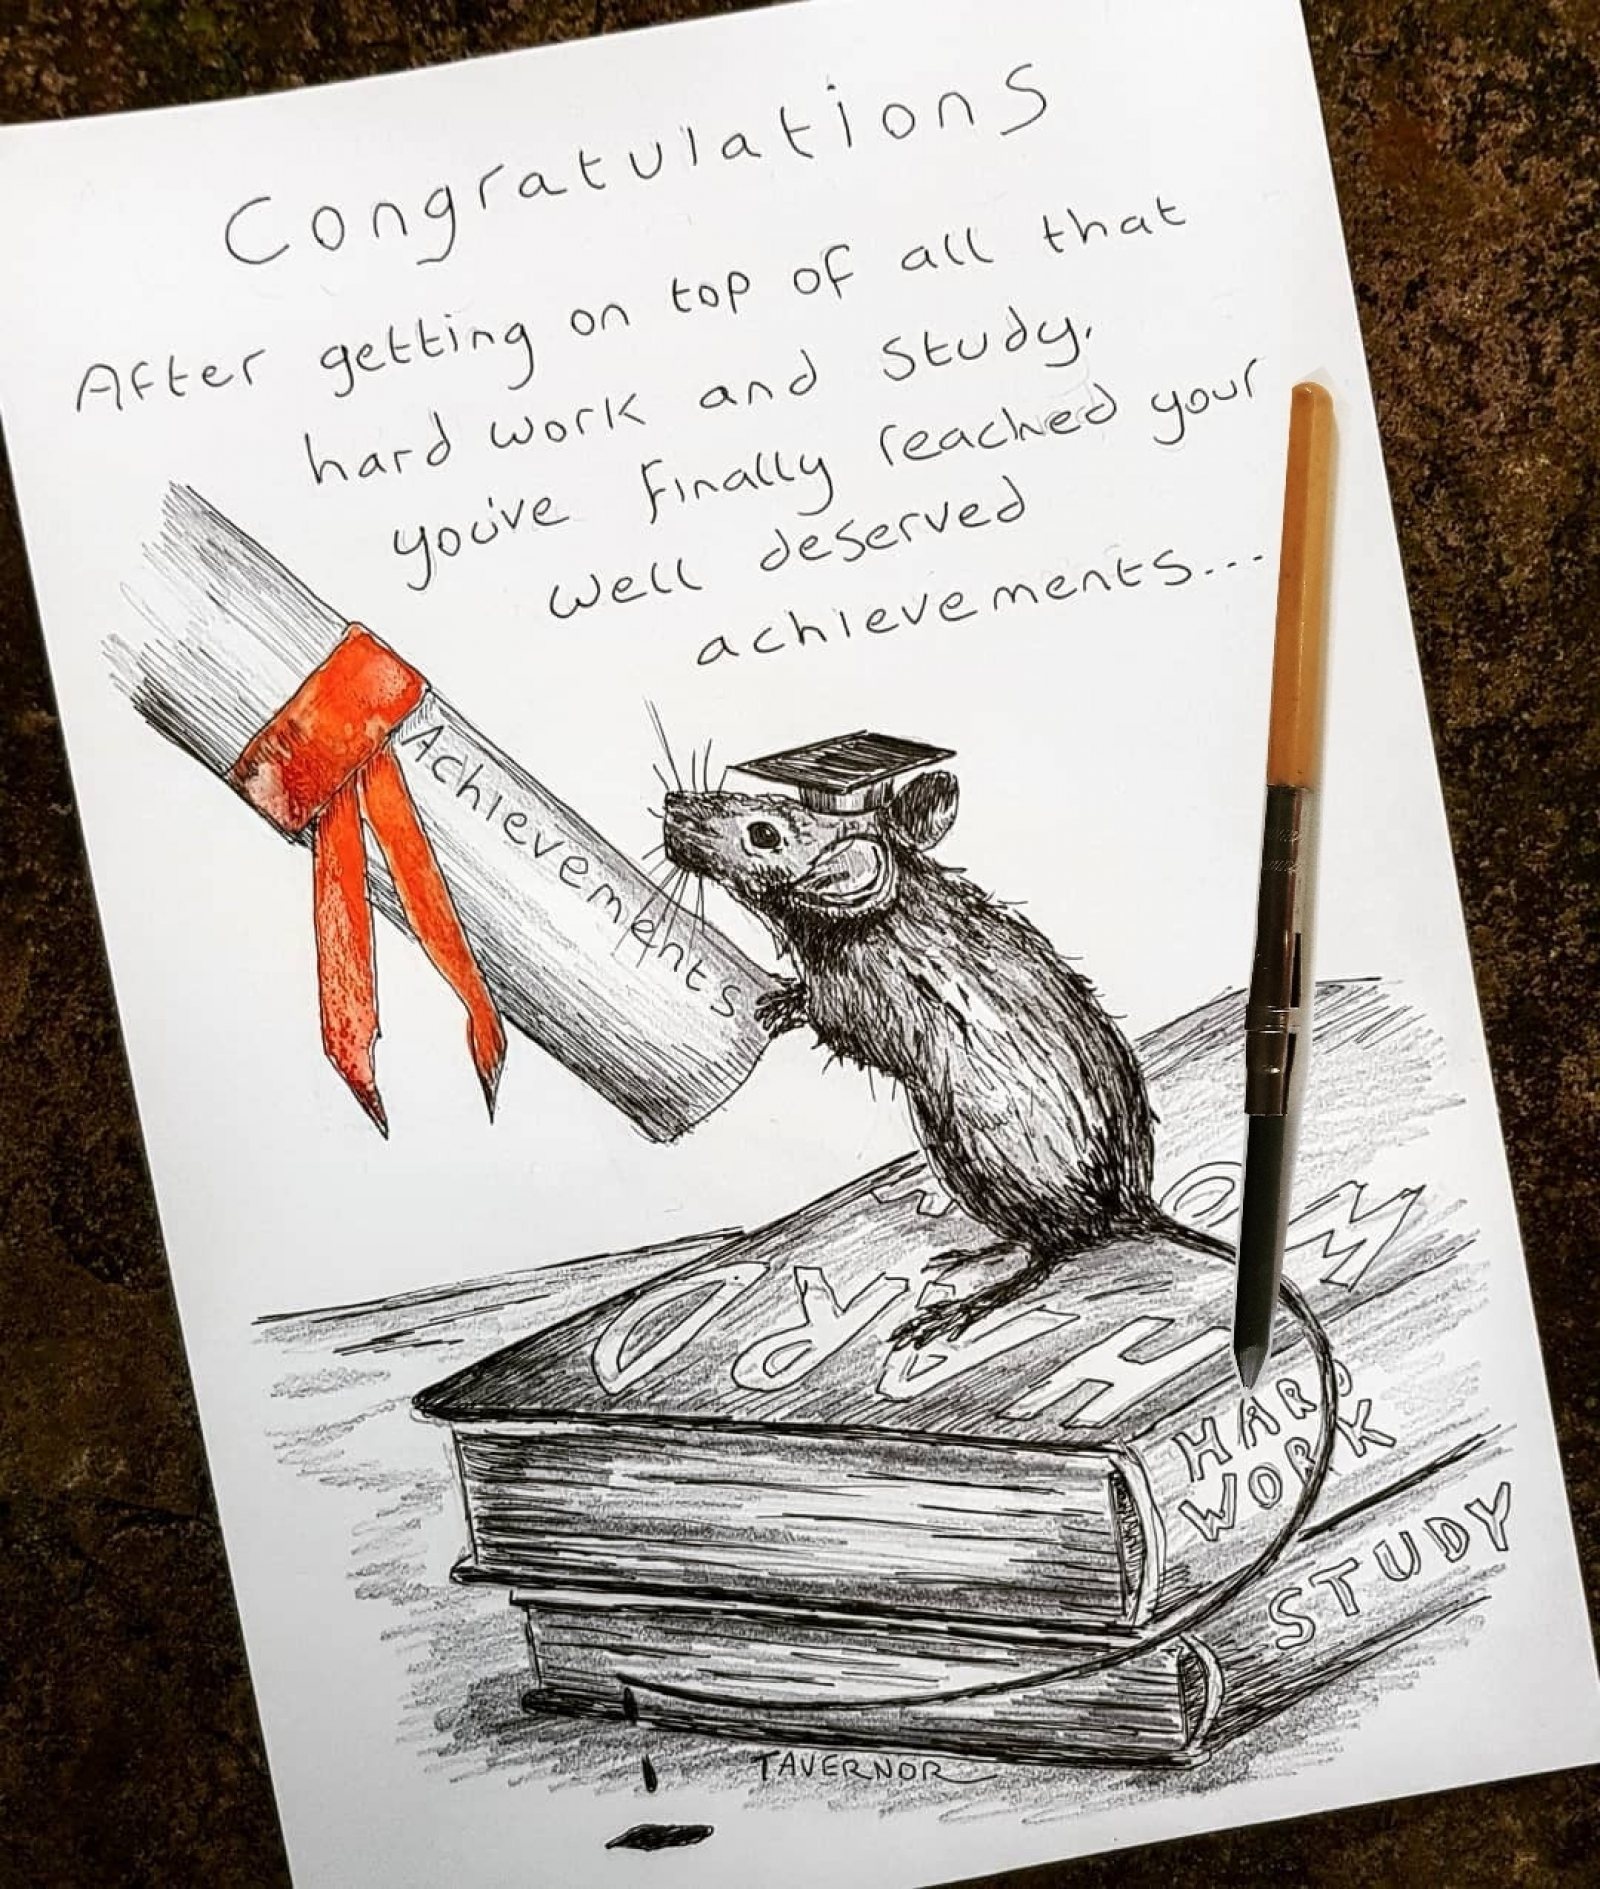 Congratulations
After getting on top of all that
hard work and study,
you've finally reached your
well deserved
achievements...
Achievements
HARD
HARD
WORK
STUDY
TAVERNOR